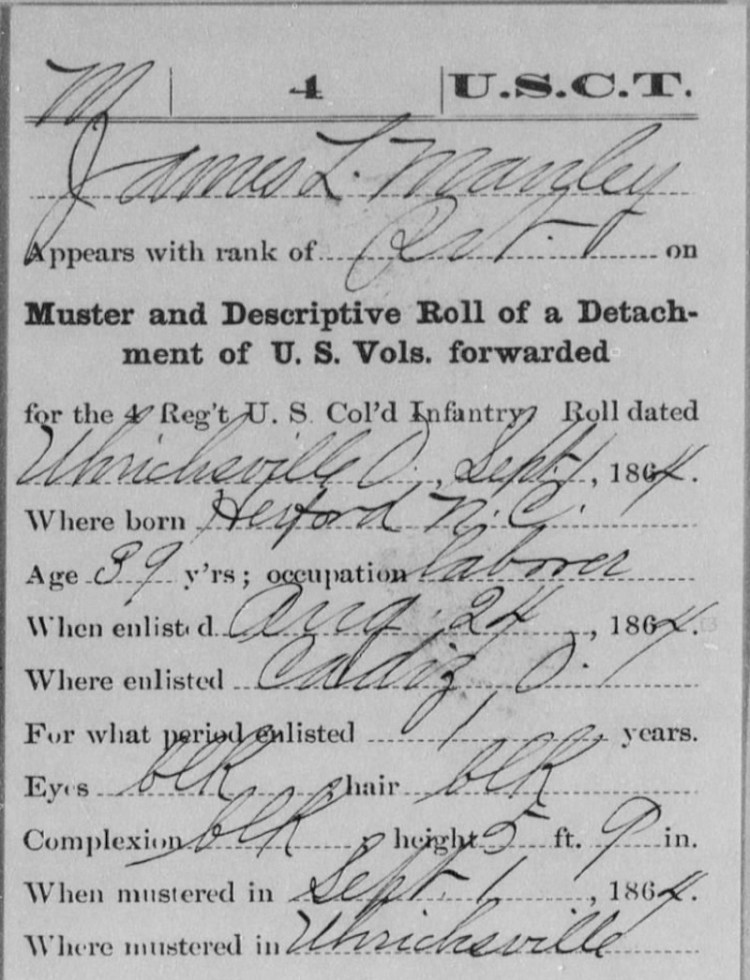 M | 4 | U.S.C.T.
James L. Manley
Appears with rank of Pvt. on
Muster and Descriptive Roll of a Detach-
ment of U. S. Vols. forwarded
for the 4 Reg't U. S. Col'd Infantry. Roll dated
Uhrichsville O., Sept. 1, 1864.
Where born Hertford N. C.
Age 39 y'rs; occupation laborer
When enlisted Aug. 24, 1864.
Where enlisted Cadiz, O.
For what period enlisted 1 years.
Eyes blk; hair blk
Complexion blk; height 5 ft. 9 in.
When mustered in Sept. 1, 1864.
Where mustered in Uhrichsville